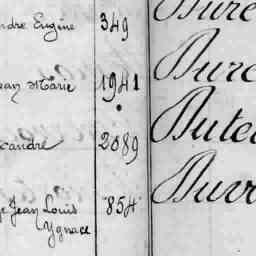 ndre Eugène 349 Bure
ean Marie 1941 Bure
candre 2089 Butea
e Jean Louis 854 Buvr
Ygnace